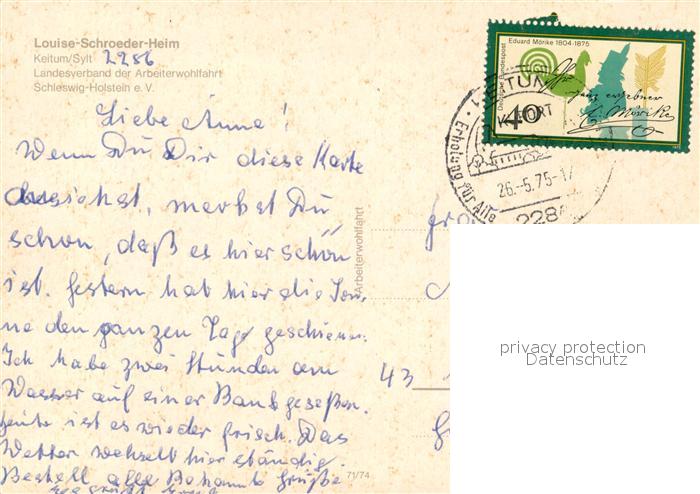 Louise-Schroeder-Heim
Keitum/Sylt 2286
Landesverband der Arbeiterwohlfahrt
Schleswig-Holstein e. V.
Liebe Anna!
Wenn Du Dir diese Karte
ansiehst, merkst Du
schon, daß es hier schön
ist. Gestern hat hier die Son-
ne den ganzen Tag geschienen.
Ich habe zwei Stunden am
Wasser auf einer Bank gesessen.
Heute ist es wieder frisch. Das
Wetter wechselt hier ständig.
Bestell alle Bekannte Grüße
Es grüßt
Arbeiterwohlfahrt
71/74
Eduard Mörike 1804-1875
Deutsche Bundespost
40
ganz ergebner
E. Mörike
KEITUM
KURORT
Erholung für Alle
26.-5.75-17
228
43
privacy protection
Datenschutz